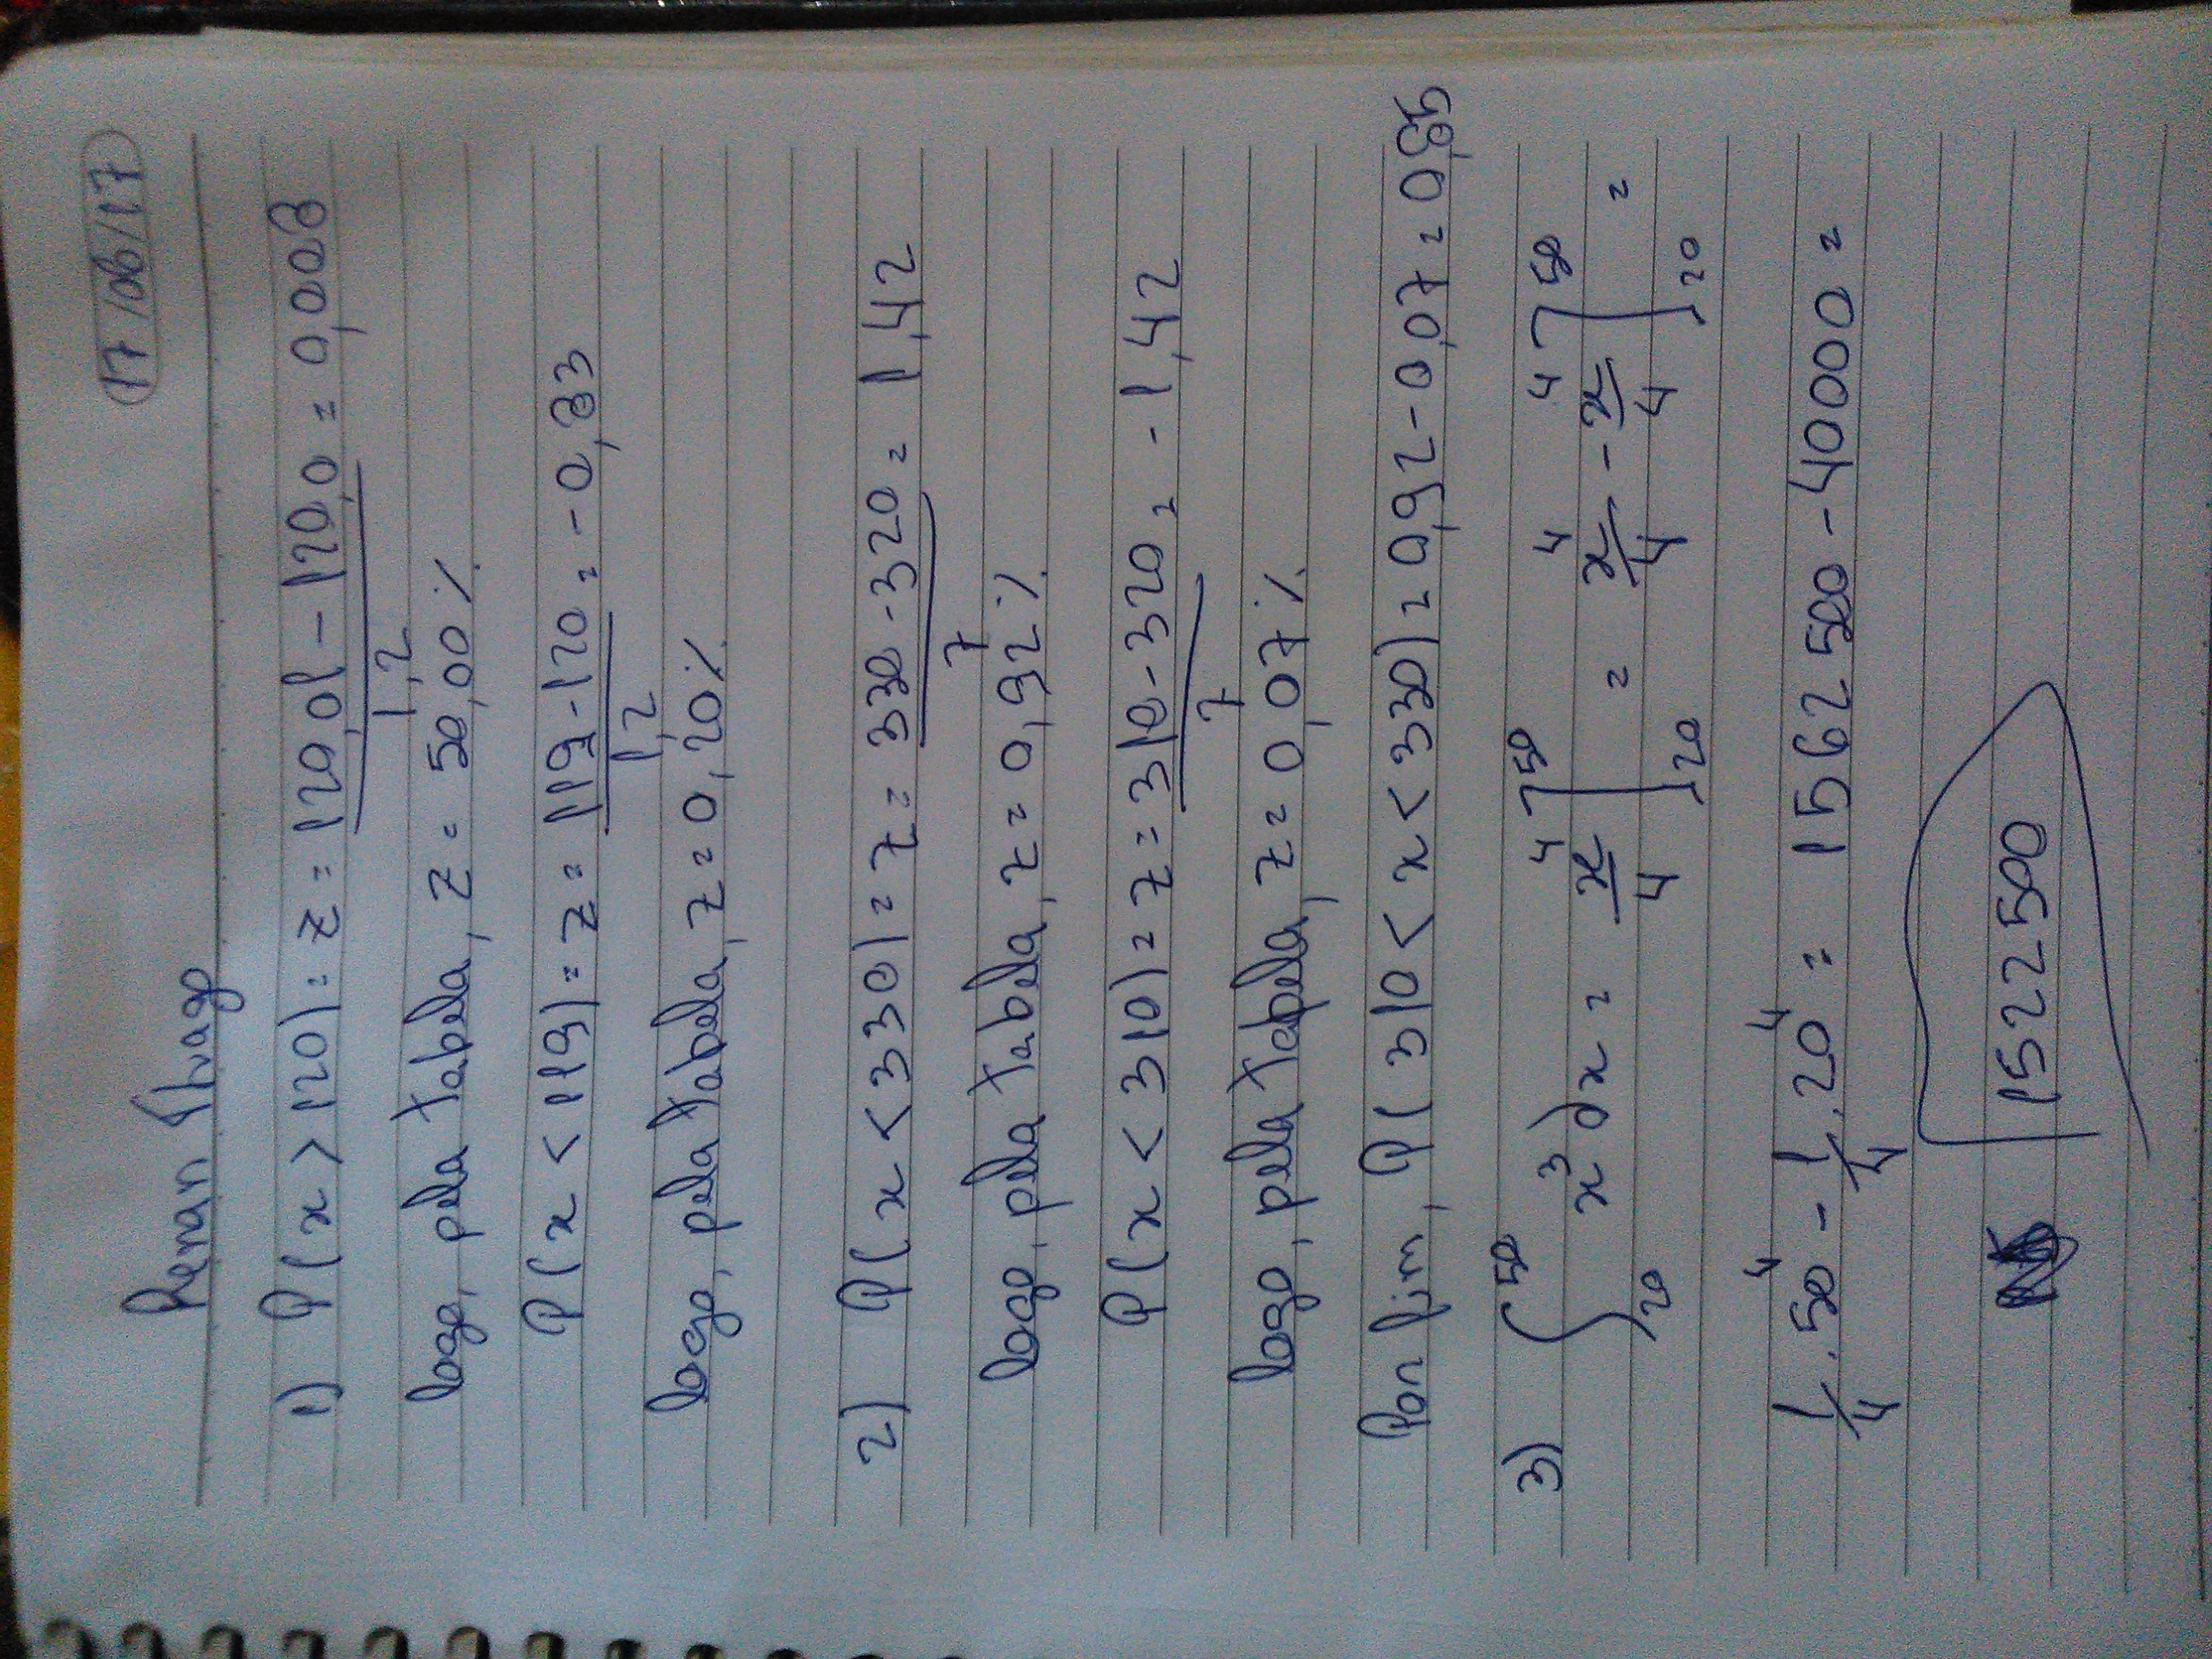 17/06/17
Renan Thiago
1) P(x > 120) = z = 120,01 - 120,0 = 0,008
1,2
logo, pela tabela, z = 50,00%
P(x < 119) = z = 119 - 120 = -0,83
1,2
logo, pela tabela, z = 0,20%
2) P(x < 330) = z = 330 - 320 = 1,42
7
logo, pela tabela, z = 0,92%
P(x < 310) = z = 310 - 320 = -1,42
7
logo, pela tabela, z = 0,07%
Por fim, P(310 < x < 330) = 0,92 - 0,07 = 0,85
3) ∫₂₀⁵⁰ x³ dx = x⁴/4 ]₂₀⁵⁰ = x⁴/4 - x⁴/4 ]₂₀⁵⁰ =
1/4 . 50⁴ - 1/4 . 20⁴ = 1562500 - 40000 =
1522500